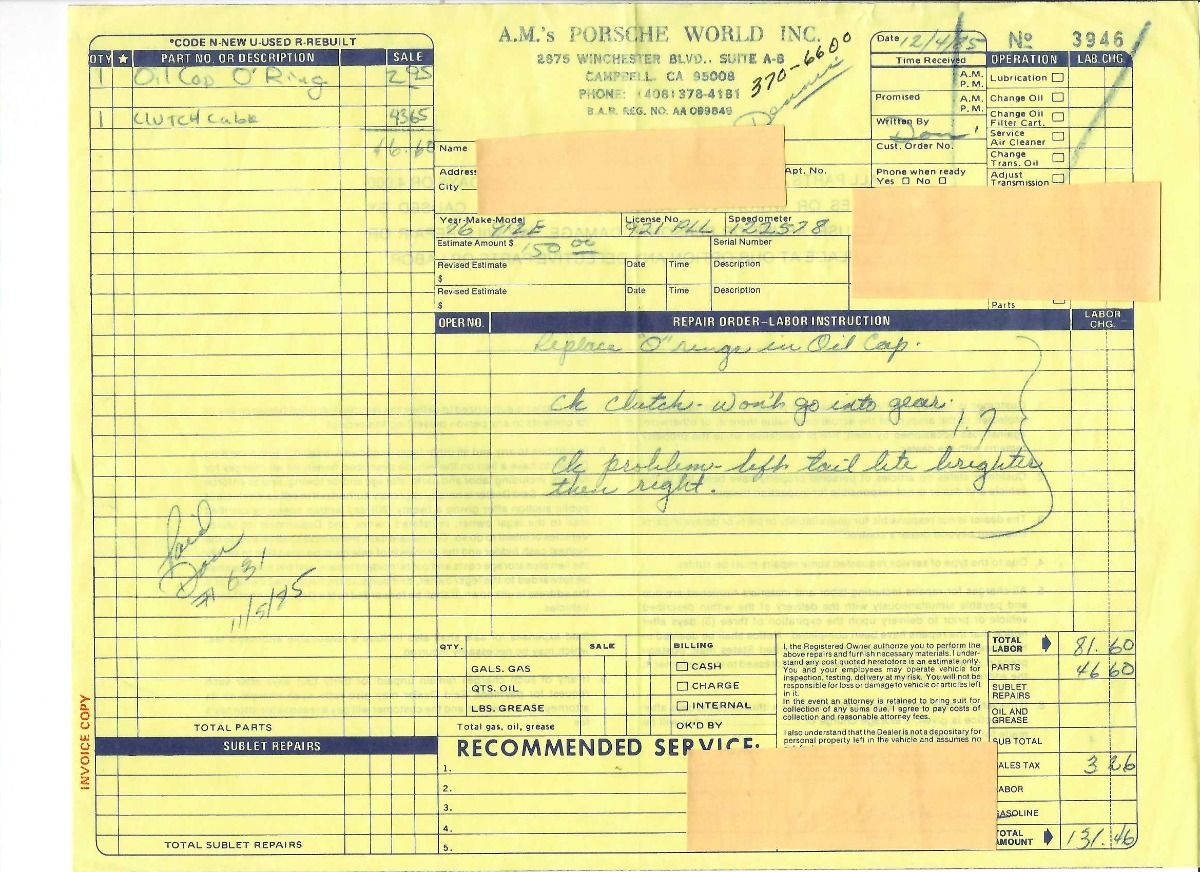 *CODE N-NEW U-USED R-REBUILT
QTY ★ PART NO. OR DESCRIPTION SALE
1 Oil Cap O' Ring 2 95
1 CLUTCH Cable 43 65
A.M.'s PORSCHE WORLD INC.
2875 WINCHESTER BLVD., SUITE A-8
CAMPBELL, CA 95008
PHONE: (408) 378-4181
B.A.R. REG. NO. AA 089849
370-6600
Dennis
Date 12/4/85
Nº 3946
Time Received A.M. P.M.
Promised A.M. P.M.
Written By Don
Cust. Order No.
Phone when ready
Yes No
OPERATION LAB. CHG.
Lubrication
Change Oil
Change Oil Filter Cart.
Service Air Cleaner
Change Trans. Oil
Adjust Transmission
Parts
Name
Address Apt. No.
City
Year-Make-Model License No. Speedometer
76 912E 921 PLL 122578
Estimate Amount $ 150 00 Serial Number
Revised Estimate Date Time Description
$
Revised Estimate Date Time Description
$
OPER NO. REPAIR ORDER-LABOR INSTRUCTION LABOR CHG.
Replace "O" rings in Oil Cap.
Ck clutch - won't go into gear.
1.7
Ck problem - left tail lite brighter
then right.
Paid
# 631
11/5/85
INVOICE COPY
TOTAL PARTS
SUBLET REPAIRS
TOTAL SUBLET REPAIRS
QTY. SALE BILLING
GALS. GAS CASH
QTS. OIL CHARGE
LBS. GREASE INTERNAL
Total gas, oil, grease OK'D BY
RECOMMENDED SERVICE:
1.
2.
3.
4.
5.
I, the Registered Owner authorize you to perform the
above repairs and furnish necessary materials. I under-
stand any cost quoted heretofore is an estimate only.
You and your employees may operate vehicle for
inspection, testing, delivery at my risk. You will not be
responsible for loss or damage to vehicle or articles left
in it.
In the event an attorney is retained to bring suit for
collection of any sums due, I agree to pay costs of
collection and reasonable attorney fees.
I also understand that the Dealer is not a depositary for
personal property left in the vehicle and assumes no
TOTAL LABOR 81.60
PARTS 46 60
SUBLET REPAIRS
OIL AND GREASE
SUB TOTAL
ALES TAX 3 26
ABOR
GASOLINE
TOTAL AMOUNT 131.46